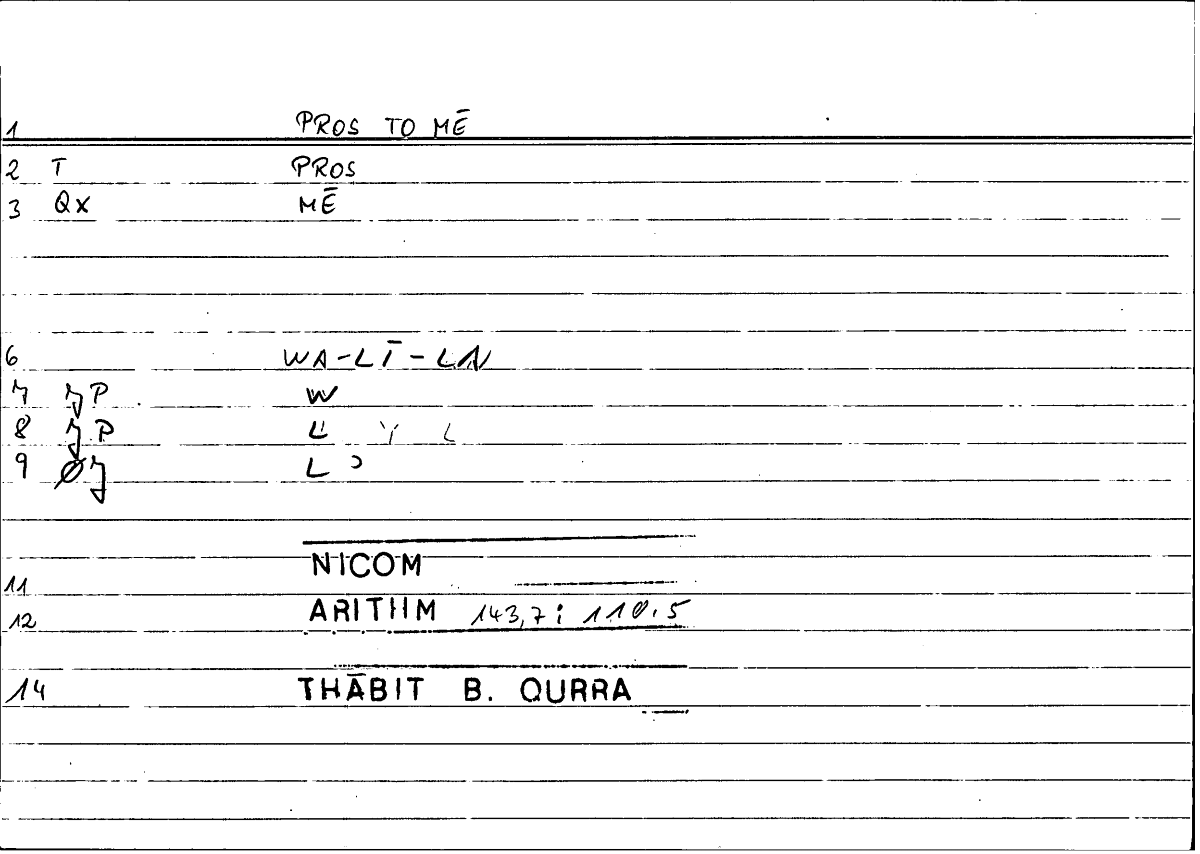 1 PROS TO MĒ
2 T PROS
3 Qx MĒ
6 WA-LĪ-LN
7 P W
8 P L Y L
9 L
11 NICOM
12 ARITHM 143,7; 110.5
14 THĀBIT B. QURRA